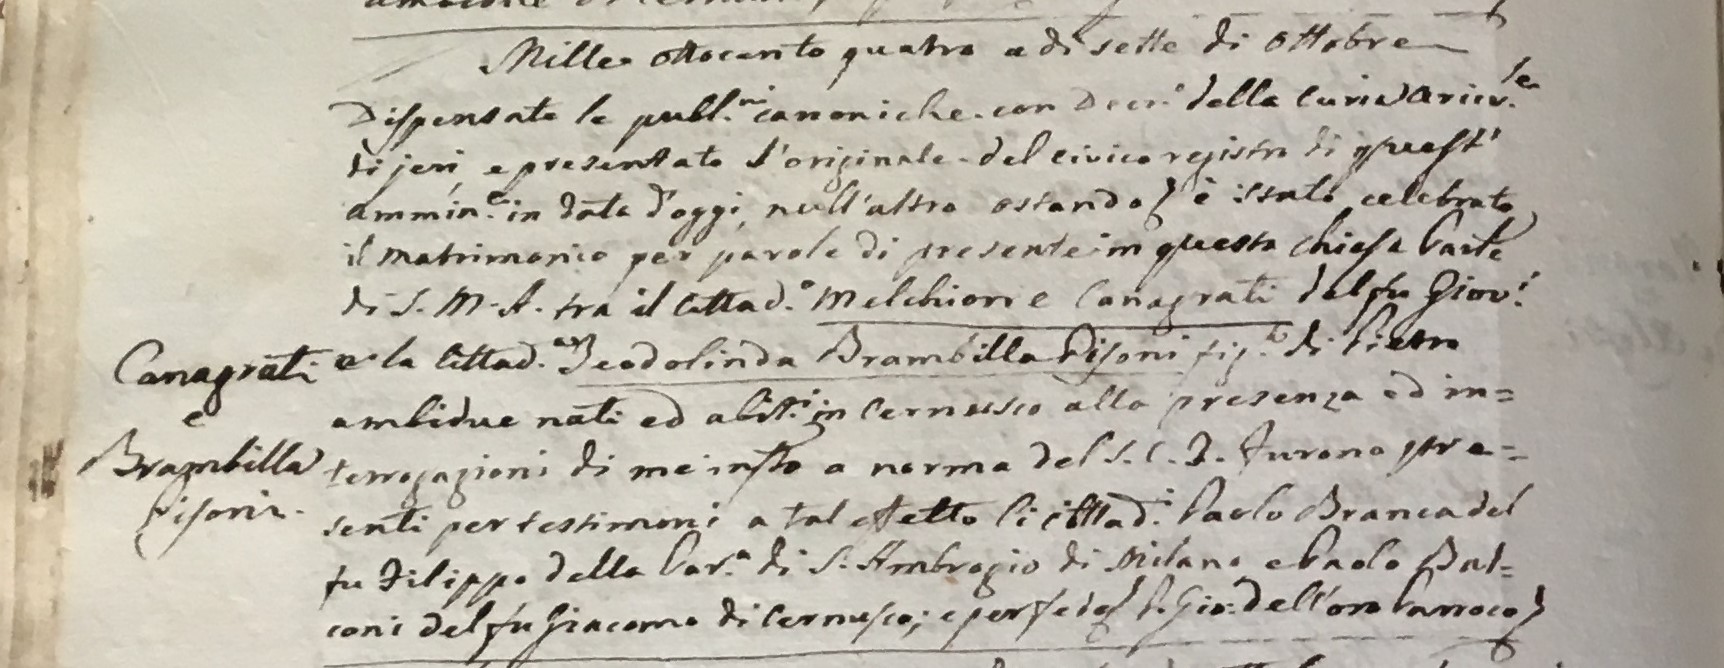 Mille ottocento quatro a di sette di Ottobre
Dispensate le publ.ni canoniche con Decr.o della Curia Arciv.le
di jeri, e presentato l'originale del civico registro di quest'
ammin.e in data d'oggi, null'altro ostando è stato celebrato
il matrimonio per parole di presente in questa chiesa Parle
di S. M. A. tra il Cittad.o Melchiorre Canagrati del fu Giov.i
Canagrati e la Cittad.a Teodolinda Brambilla Pisoni fig.a di Pietro
e
ambidue nati ed abit.i in Cernusco alla presenza ed in=
Brambilla terrogazioni di me infto a norma del S. C. T. furono pre=
Pisoni.
senti per testimoni a tal effetto li cittad.i Paolo Branca del
fu Filippo della Par.a di S. Ambrogio di Milano e Paolo Bal=
coni del fu Giacomo di Cernusco; e per fede P. Gio: dell'oro Parroco